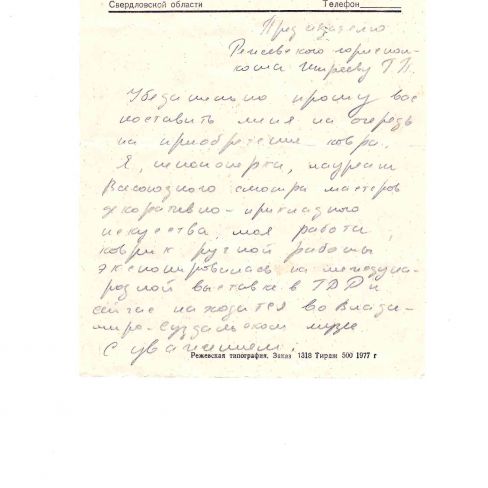 Свердловской области Телефон
Председателю
Режевского гориспол-
кома Ширяеву Г П.
Убедительно прошу вас
поставить меня на очередь
на приобретение ковра.
Я, пенсионерка, лауреат
Всесоюзного смотра мастеров
декоративно-прикладного
искусства, моя работа,
коврик ручной работы
экспонировалась на междуна-
родной выставке в ГДР и
сейчас находится во Влади-
миро-Суздальском музее
С уважением:
Режевская типография. Заказ 1318 Тираж 500 1977 г